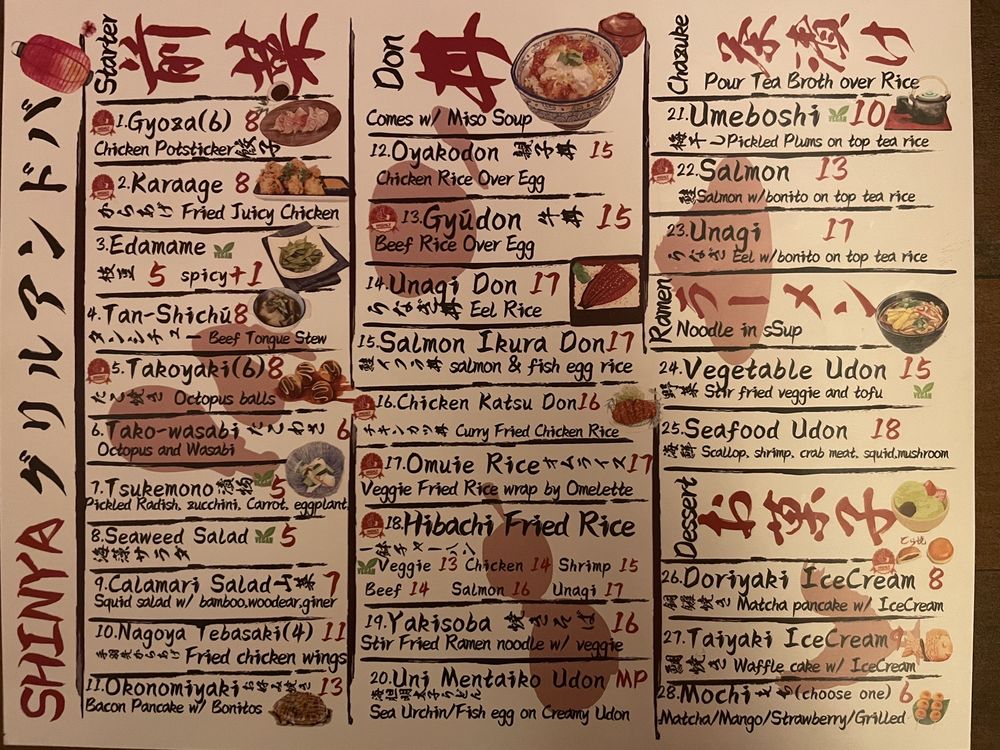 SHINYA グリルアンドバ
Starter 前菜
1.Gyoza(6) 8
Chicken Potsticker 餃子
2.Karaage 8
からあげ Fried Juicy Chicken
3.Edamame VEGAN
枝豆 5 spicy+1
4.Tan-Shichū 8
タンシチュー Beef Tongue Stew
5.Takoyaki(6) 8
たこ焼き Octopus balls
6.Tako-wasabi たこわさ 6
Octopus and Wasabi
7.Tsukemono 漬物 VEGAN 5
Pickled Radish. zucchini. Carrot. eggplant
8.Seaweed Salad VEGAN 5
海藻サラダ
9.Calamari Salad 山菜 7
Squid salad w/ bamboo,woodear,giner
10.Nagoya Tebasaki(4) 11
手羽先からあげ Fried chicken wings
11.Okonomiyaki お好み焼き 13
Bacon Pancake w/ Bonitos
Don 丼
Comes w/ Miso Soup
12.Oyakodon 親子丼 15
Chicken Rice Over Egg
13.Gyūdon 牛丼 15
Beef Rice Over Egg
14.Unagi Don 17
うなぎ丼 Eel Rice
15.Salmon Ikura Don 17
鮭イクラ丼 salmon & fish egg rice
16.Chicken Katsu Don 16
チキンカツ丼 Curry Fried Chicken Rice
17.Omuie Rice オムライス 17
Veggie Fried Rice wrap by Omelette
18.Hibachi Fried Rice
鉄チャーハン
VEGAN Veggie 13 Chicken 14 Shrimp 15
Beef 14 Salmon 16 Unagi 17
19.Yakisoba 焼きそば 16
Stir Fried Ramen noodle w/ veggie
20.Uni Mentaiko Udon MP
海胆明太子うどん
Sea Urchin/Fish egg on Creamy Udon
Chazuke 茶漬け
Pour Tea Broth over Rice
21.Umeboshi VEGAN 10
梅干し Pickled Plums on top tea rice
22.Salmon 13
鮭 Salmon w/bonito on top tea rice
23.Unagi 17
うなぎ Eel w/bonito on top tea rice
Ramen ラーメン
Noodle in sSup
24.Vegetable Udon 15
野菜 Stir fried veggie and tofu VEGAN
25.Seafood Udon 18
海鮮 Scallop. shrimp. crab meat. squid.mushroom
Dessert お菓子
どら焼
26.Doriyaki IceCream 8
銅鑼焼き Matcha pancake w/ IceCream
27.Taiyaki IceCream 9
鯛焼き Waffle cake w/ IceCream
28.Mochi もち (choose one) 6
Matcha/Mango/Strawberry/Grilled